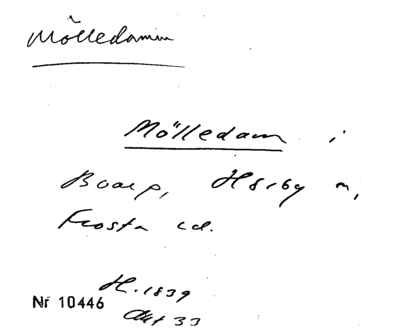 Mölledamm
Mölledam i
Boarp, Hörby sn,
Frosta hd.
H. 1839
Nr 10446
Akt 33